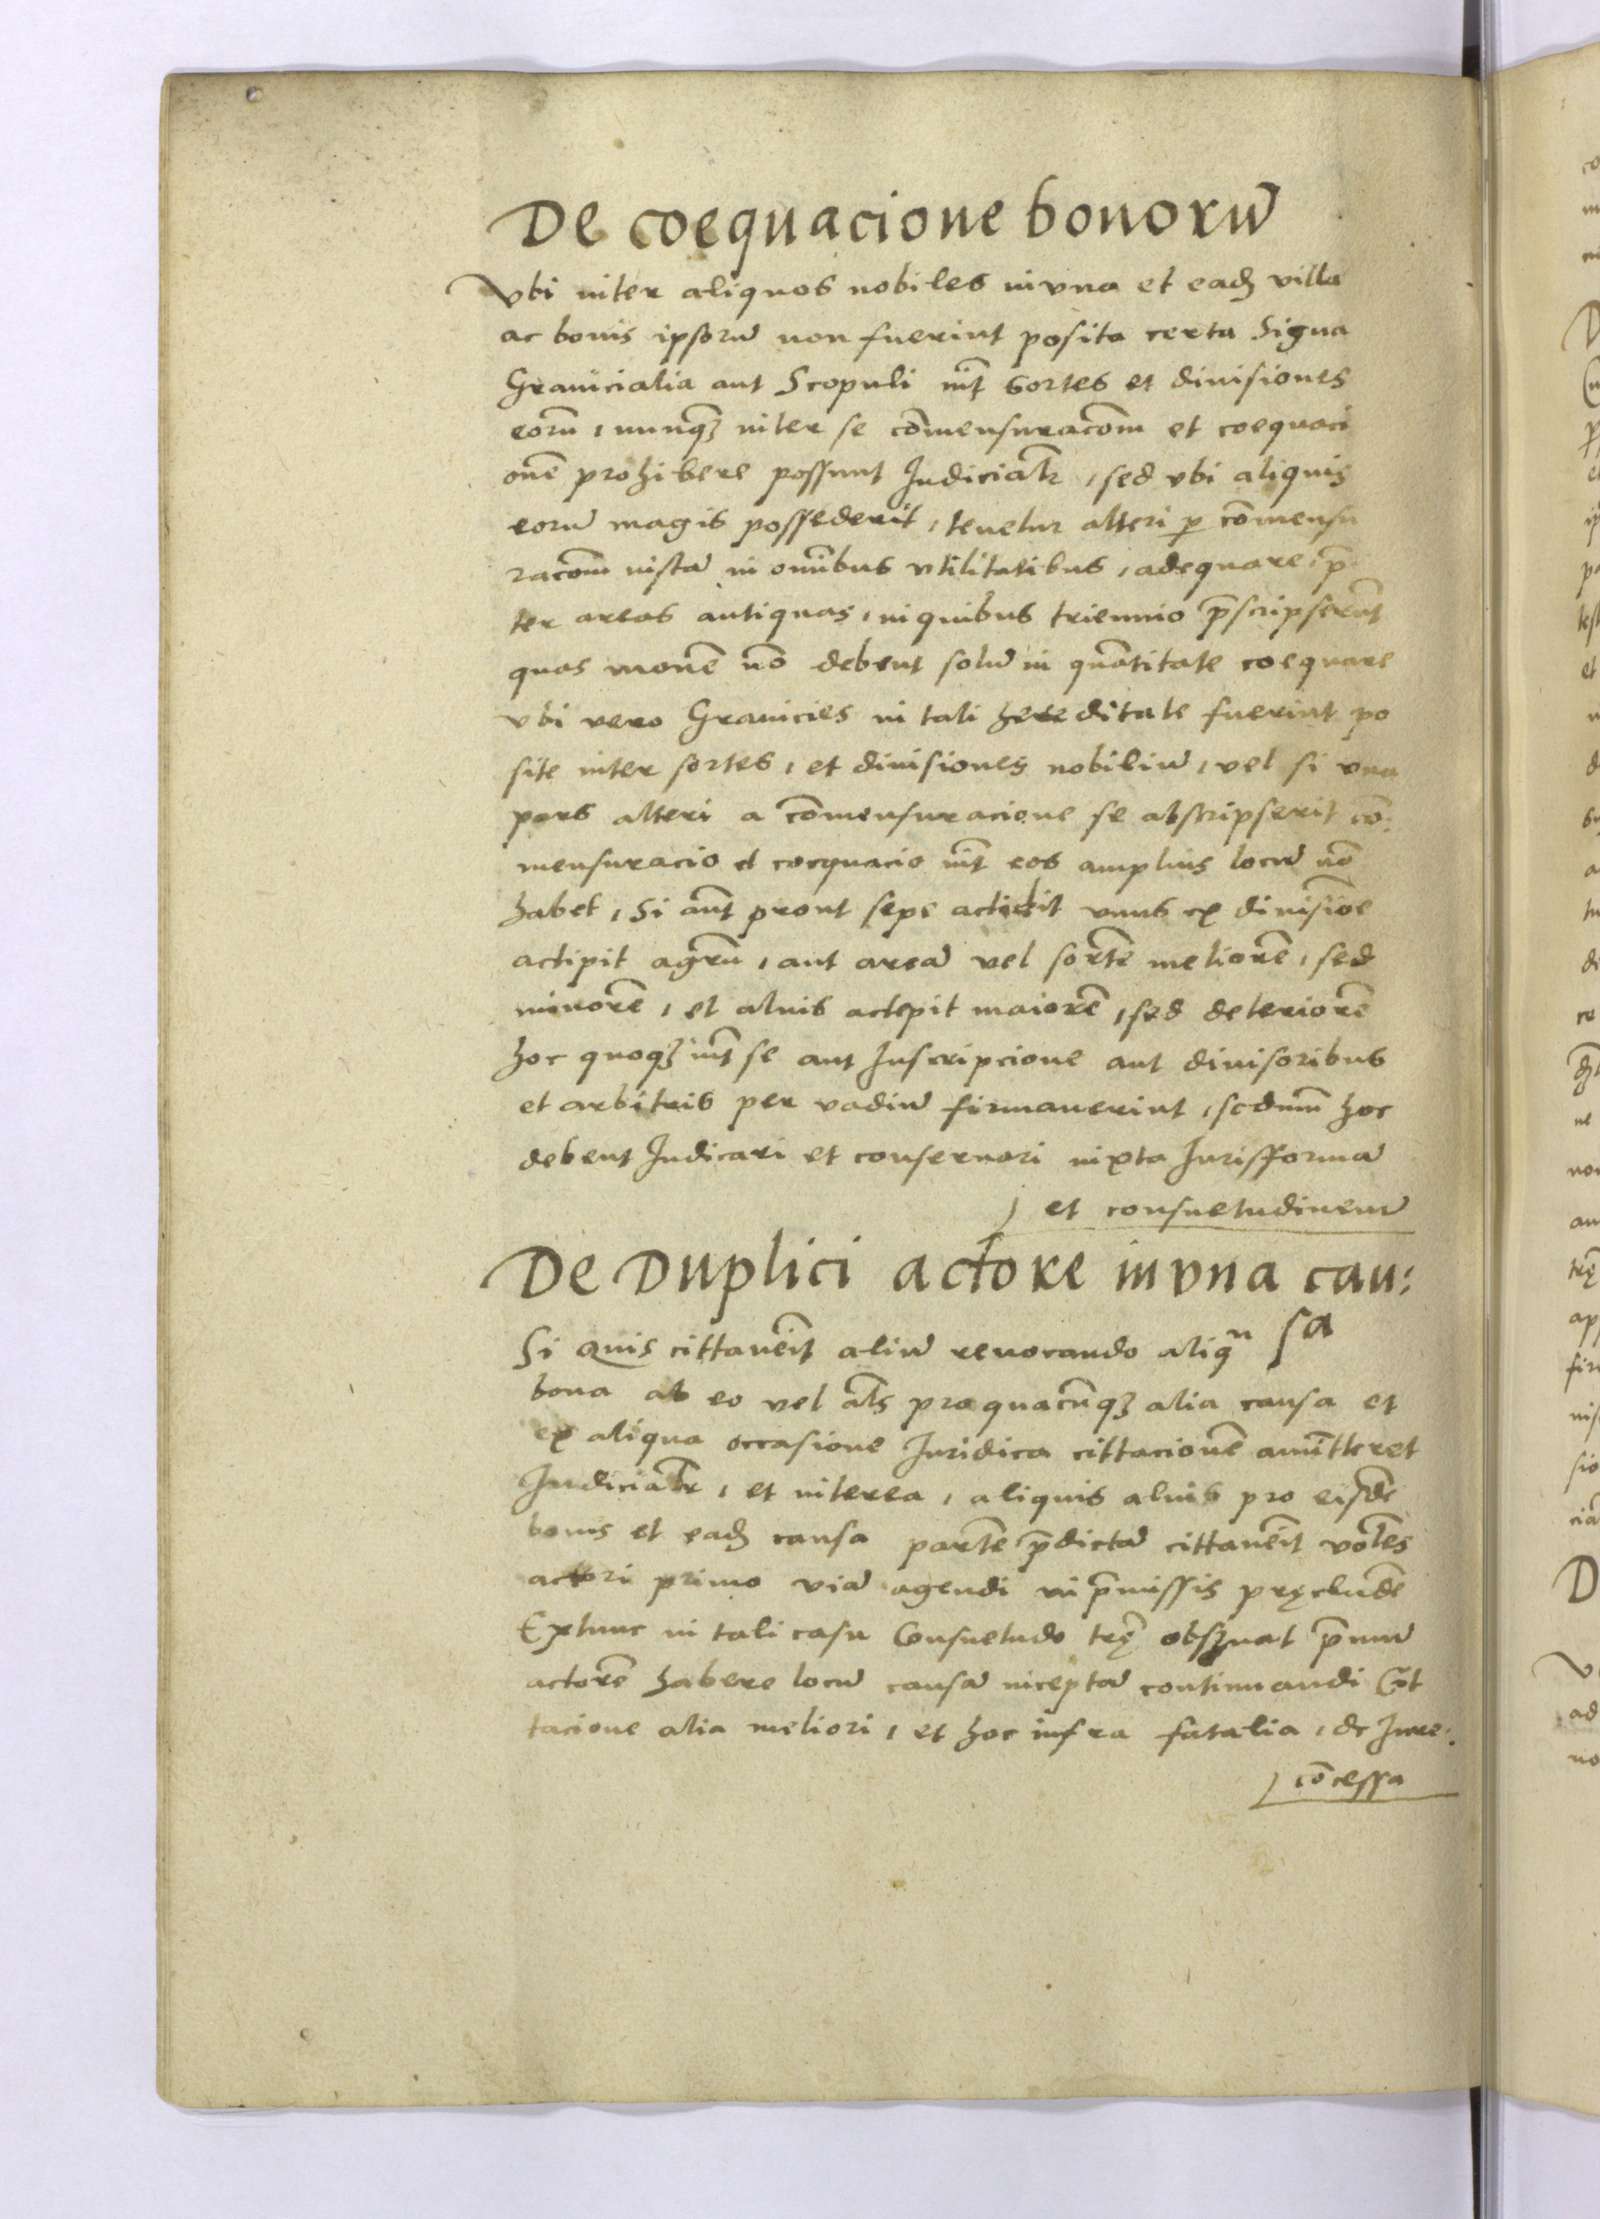 De coequacione bonorū
Vbi inter aliquos nobiles in vna et eadꝫ villa
ac bonis ipsorū non fuerint posita certa Signa
Granicialia aut Scopuli int̄ sortes et diuisiones
eorū, nunqꝫ inter se cōmensuracōm et coequaci
onē prohibere possunt Judicialr̄, sed vbi aliquis
eorū magis possederit, tenetur alteri ꝑ cōmensu
racōm iustā in om̄ibus vtilitatibus, adequare, p̄
ter areas antiquas, in quibus triennio p̄scripserāt
quas monē nō debent solū in quātitate coequare
vbi vero Granicies in tali hereditate fuerint po
site inter sortes, et diuisiones nobiliū, vel si vna
pars alteri a cōmensuracione se abscripserit cō:
mensuracio et coequacio int̄ eos amplius locū nō
habet, Si aūt prout sepe actidit vnus ex diuisiōe
actipit agrū, aut areā vel sortē meliorē, sed
minorē, et alius actepit maiorē, sed deteriorē
hoc quoqꝫ int̄ se aut Inscripcione aut diuisoribus
et arbitris per vadiū firmauerint, scdm̄ hoc
debent Judicari et conseruari iuxta Jurisformā
et consuetudinem
De Duplici actore in vna cau:
sa
Si Quis cittauēit aliū reuocando aliqͣ
bona ab eo vel al̄s pro quacūqꝫ alia causa et
ex aliqua occasione Juridica cittacionē amitteret
Judicialr̄, et interea, aliquis alius pro eisdē
bonis et eadꝫ causa partē p̄dictā cittauēit volēs
actori primo viā agendi in p̄missis pręcludē
Extunc in tali casu Consuetudo tr̄ę obseruat p̄mū
actorē habere locū causā inceptā continuandi Cit
tacione alia meliori, et hoc infra fatalia, de Jure:
cōcessa